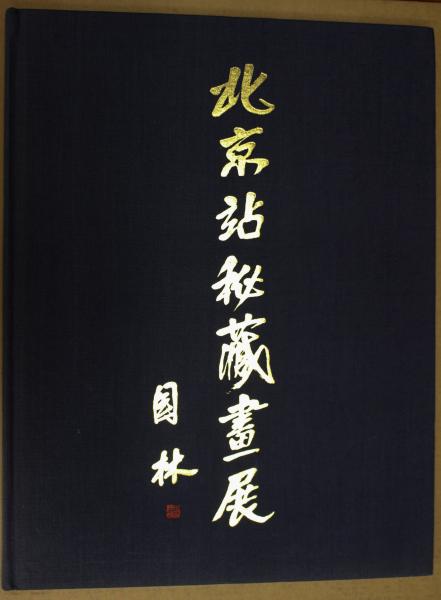 北京站秘藏畫展
国林